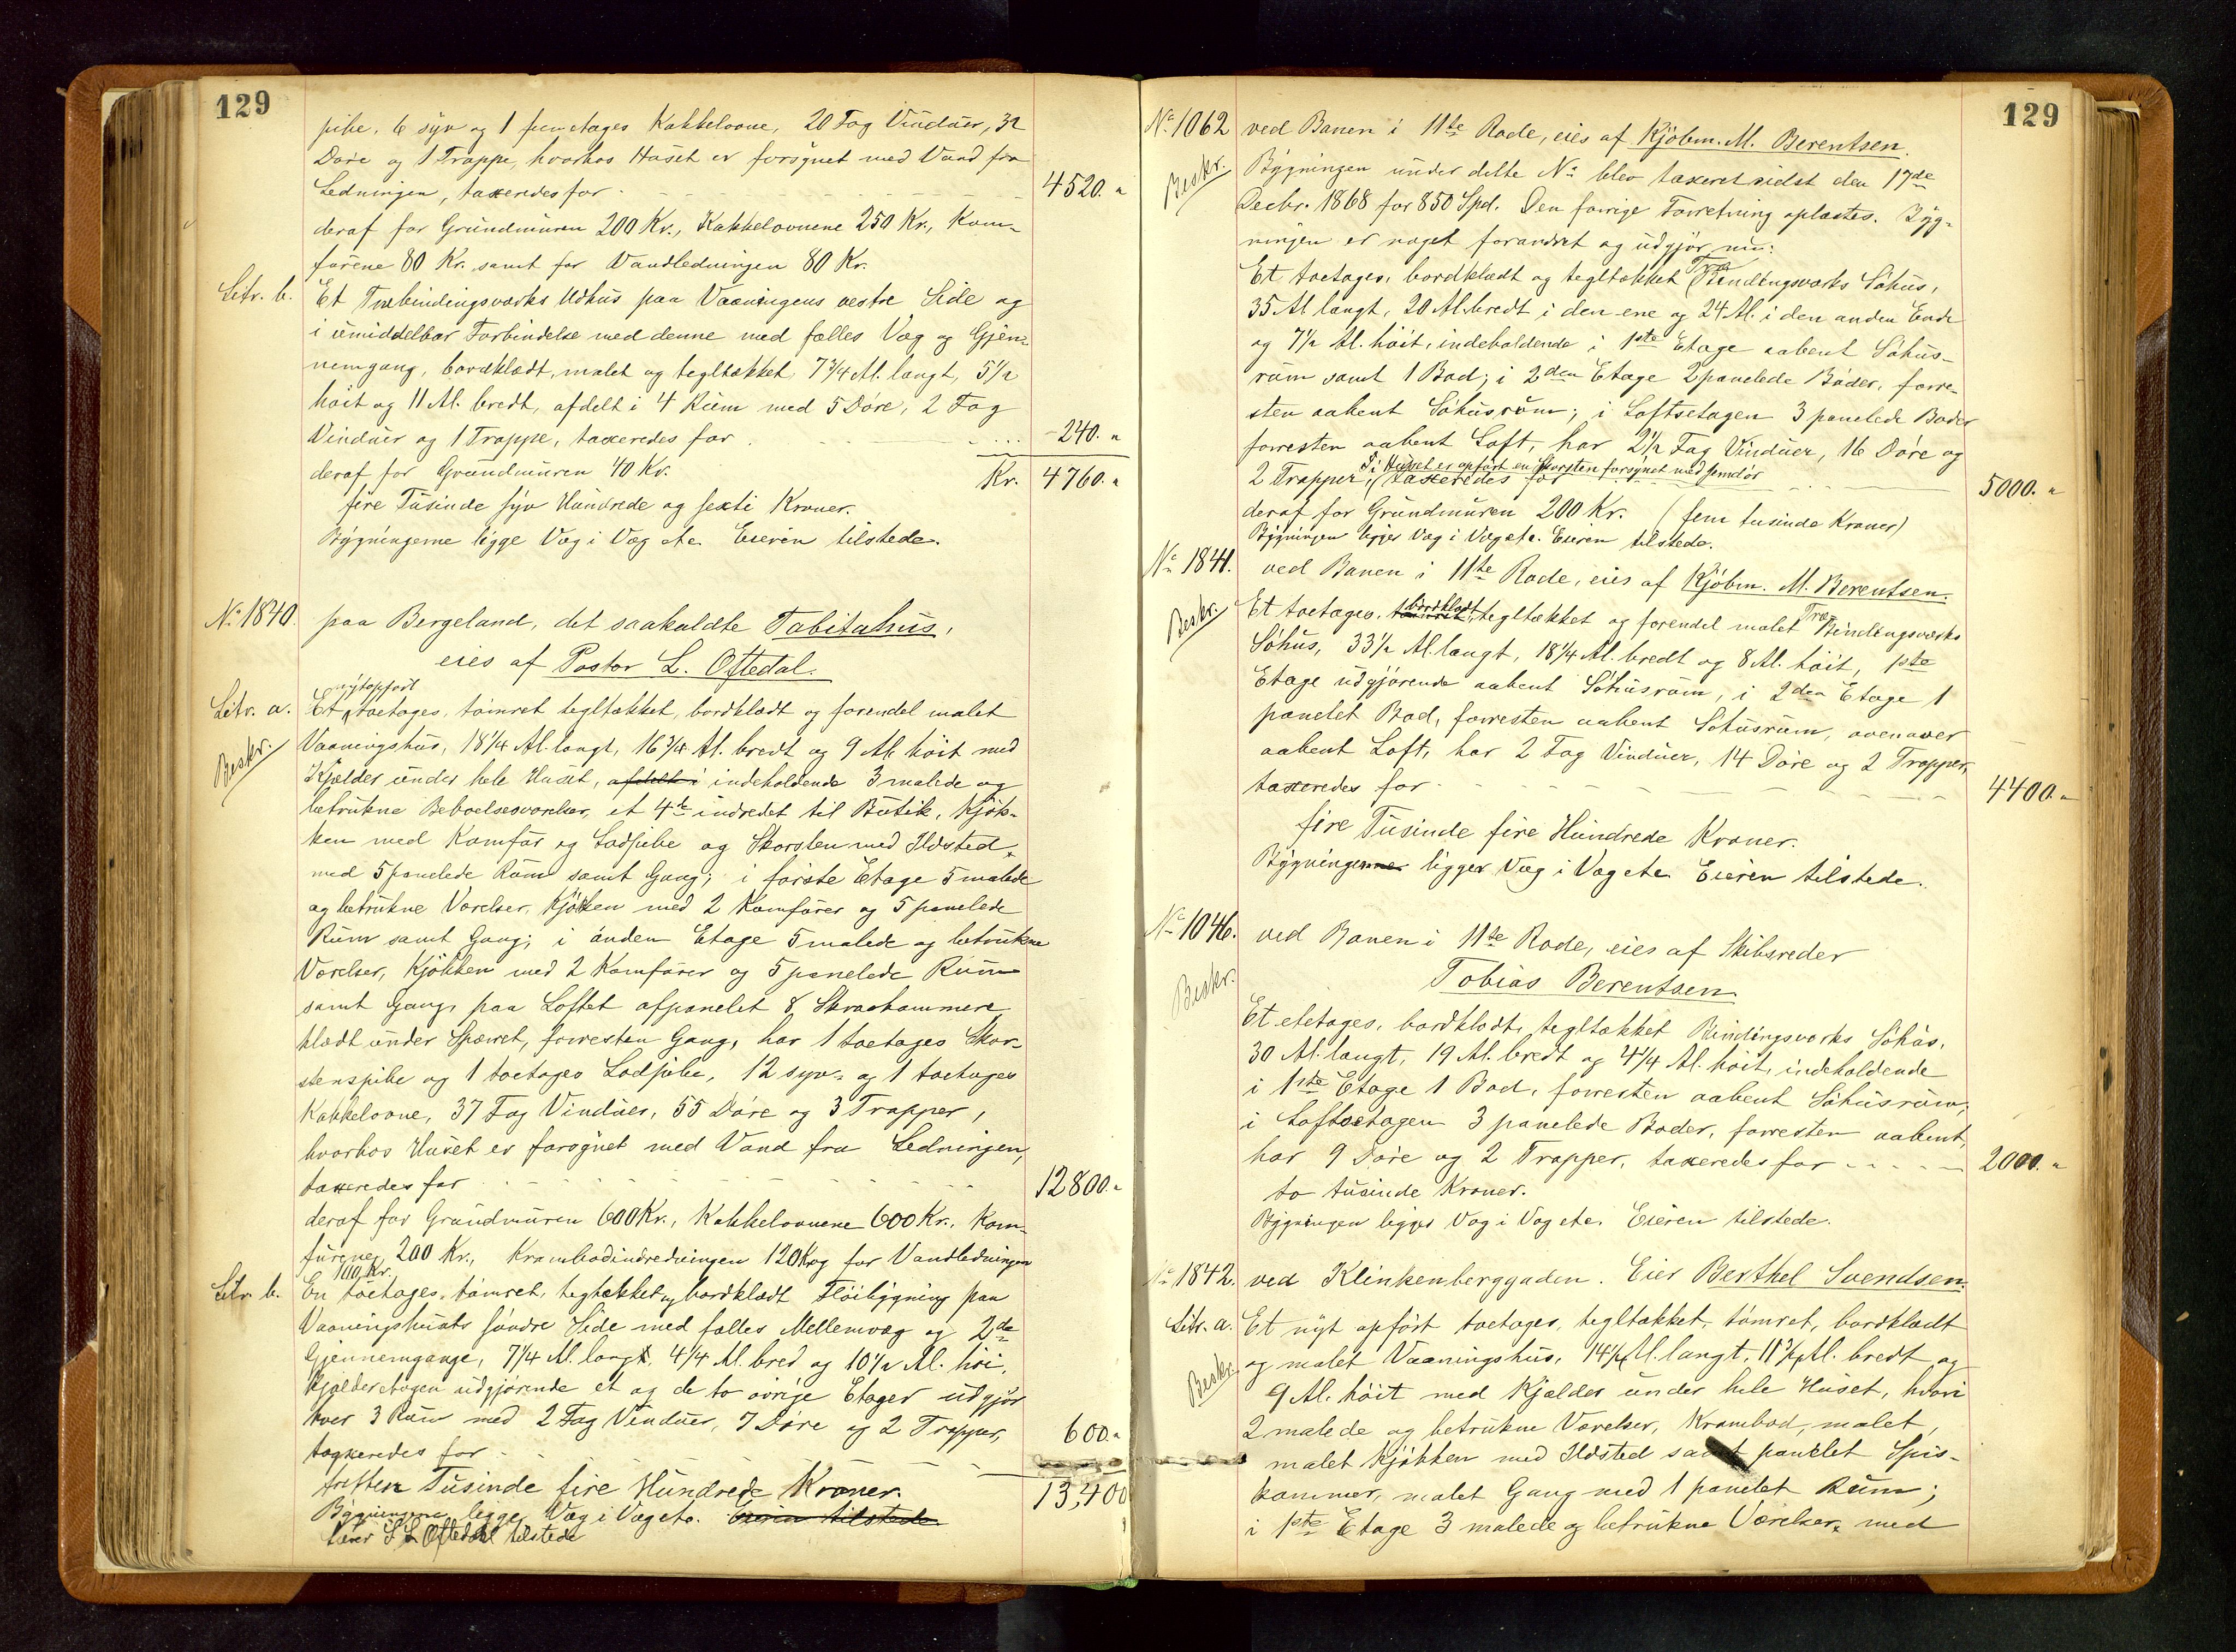 129
pibe, 6 syv og 1 femetages Kakkelovne, 20 Fag Vinduer, 32
Døre og 1 Trappe, hvorhos Huset er forsynet med Vand fra
Ledningen, taxeredes for 4520. "
deraf for Grundmuren 200 Kr., Kakkelovnene 250 Kr., Kom-
furene 80 Kr. samt for Vandledningen 80 Kr.
Litr. b. Et Træbindingsværks Udhus paa Vaaningens vestre Side og
i umiddelbar Forbindelse med denne med fælles Væg og Gjen-
nemgang, bordklædt, malet og tegltækket, 7 3/4 Al. langt, 5 1/2
høit og 11 Al. bredt, afdelt i 4 Rum med 5 Døre, 2 Fag
Vinduer og 1 Trappe, taxeredes for 240. "
deraf for Grundmuren 40 Kr. Kr. 4760. "
fire Tusinde syv Hundrede og sexti Kroner.
Bygningerne ligge Væg i Væg etc. Eieren tilstede.
No. 1840. paa Bergeland, det saakaldte Tabitahus,
eies af Pastor L. Oftedal.
nyt opført
Litr. a. Et toetages, tømret tegltækket, bordklædt og forendel malet
Beskr. Vaaningshus, 18 1/4 Al. langt, 16 3/4 Al. bredt og 9 Al. høit med
Kjælder under hele Huset, afdelt i indeholdende 3 malede og
betrukne Beboelsesværelser, et 4de indredet til Butik, Kjøk-
ken med Komfur og Lodpibe og Skorsten med Ildsted,
med 5 panelede Rum samt Gang; i første Etage 5 malede
og betrukne Værelser, Kjøkken med 2 Komfurer og 5 panelede
Rum samt Gang; i anden Etage 5 malede og betrukne
Værelser, Kjøkken med 2 Komfurer og 5 panelede Rum
samt Gang, paa Loftet afpanelet 8 Skraakammere
klædt under Sparret, forresten Gang, har 1 toetages Skor-
stenspibe og 1 toetages Lodpibe, 12 syv- og 1 toetages
Kakkelovne, 37 Fag Vinduer, 55 Døre og 3 Trapper,
hvorhos Huset er forsynet med Vand fra Ledningen,
taxeredes for 12800. "
deraf for Grundmuren 600 Kr., Kakkelovnene 600 Kr., Kom-
furene 200 Kr., Krambodindredningen 120 Kr og for Vandledningen
100 Kr.
Litr. b. En toetages, tømret, tegltækket og bordklædt Fløibygning paa
Vaaningshusets søndre Side med fælles Mellemvæg og 2de
Gjennemgange, 7 1/4 Al. langt, 4 1/4 Al. bred og 10 1/2 Al. høi,
Kjælderetagen udgjørende et og de to øvrige Etager udgjør
hver 3 Rum med 2 Fag Vinduer, 7 Døre og 2 Trapper,
taxeredes for 600. "
tretten Tusinde fire Hundrede Kroner. 13,400
Bygningerne ligge Væg i Væg etc. Eieren tilstede
S L Oftedal tilstede
129
No. 1062 ved Banen i 11te Rode, eies af Kjøbm. M. Berentsen.
Beskr. Bygningen under dette No. blev taxeret sidst den 17de
Decbr. 1868 for 850 Spd. Den forrige Forretning oplæstes. Byg-
ningen er noget forandret og udgjør nu:
Et toetages, bordklædt og tegltækket Træ Bindingsværks Søhus,
35 Al langt, 20 Al. bredt i den ene og 24 Al. i den anden Ende
og 7 1/2 Al. høit, indeholdende i 1ste Etage aabent Søhus-
rum samt 1 Bod; i 2den Etage 2 panelede Boder, forre-
sten aabent Søhusrum; i Loftsetagen 3 panelede Boder
forresten aabent Loft, har 2 1/2 Fag Vinduer, 16 Døre og
I Huset er opført en Skorsten forsynet med Jerndør
2 Trapper, taxeredes for 5000. "
deraf for Grundmuren 200 Kr. (fem tusinde Kroner)
Bygningen ligger Væg i Væg etc. Eieren tilstede.
No. 1841. ved Banen i 11te Rode, eies af Kjøbm. M. Berentsen.
Beskr. Et toetages, tømret, bordklædt tegltækket og forendel malet Træ Bindingsværks
Søhus, 33 1/2 Al. langt, 18 1/4 Al. bredt og 8 Al. høit, 1ste
Etage udgjørende aabent Søhusrum, i 2den Etage 1
panelet Bod, forresten aabent Søhusrum, ovenover
aabent Loft, har 2 Fag Vinduer, 14 Døre og 2 Trapper,
taxeredes for 4400. "
fire Tusinde fire Hundrede Kroner.
Bygningerne ligger Væg i Væg etc. Eieren tilstede.
No. 1046. ved Banen i 11te Rode, eies af Skibsreder
Tobias Berentsen
Beskr. Et etetages, bordklædt, tegltækket Bindingsværks Søhus,
30 Al. langt, 19 Al. bredt og 4 1/4 Al. høit, indeholdende
i 1ste Etage 1 Bod, forresten aabent Søhusrum,
i Loftsetagen 3 panelede Boder, forresten aabent,
har 9 Døre og 2 Trapper, taxeredes for 2000. "
to tusinde Kroner.
Bygningen ligger Væg i Væg etc. Eieren tilstede.
No. 1842. ved Klinkenberggaden. Eier Berthel Svendsen.
Litr. a. Et nyt opført toetages, tegltækket, tømret, bordklædt
Beskr. og malet Vaaningshus, 14 1/4 Al. langt, 11 3/4 Al. bredt og
9 Al. høit med Kjælder under hele Huset, hvori
2 malede og betrukne Værelser, Krambod, malet,
malet Kjøkken med Ildsted samt panelet Spis-
kammer, malet Gang med 1 panelet Rum;
i 1ste Etage 3 malede og betrukne Værelser, med